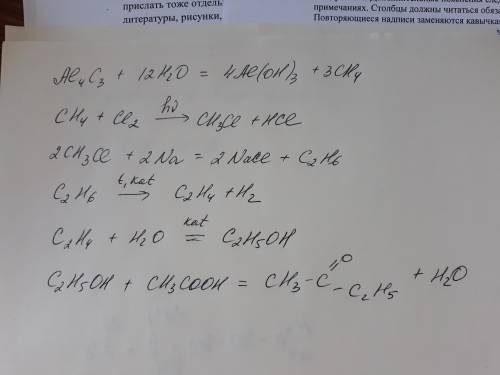 прислать тоже отдель
литературы, рисунки,
примечаниях. Столбцы должны читаться обяза
Повторяющиеся надписи заменяются кавычка
Al₄C₃ + 12H₂O = 4Al(OH)₃ + 3CH₄
CH₄ + Cl₂ hν → CH₃Cl + HCl
2CH₃Cl + 2Na = 2NaCl + C₂H₆
C₂H₆ t, kat → C₂H₄ + H₂
C₂H₄ + H₂O kat = C₂H₅OH
C₂H₅OH + CH₃COOH = CH₃-C=O -C₂H₅ + H₂O